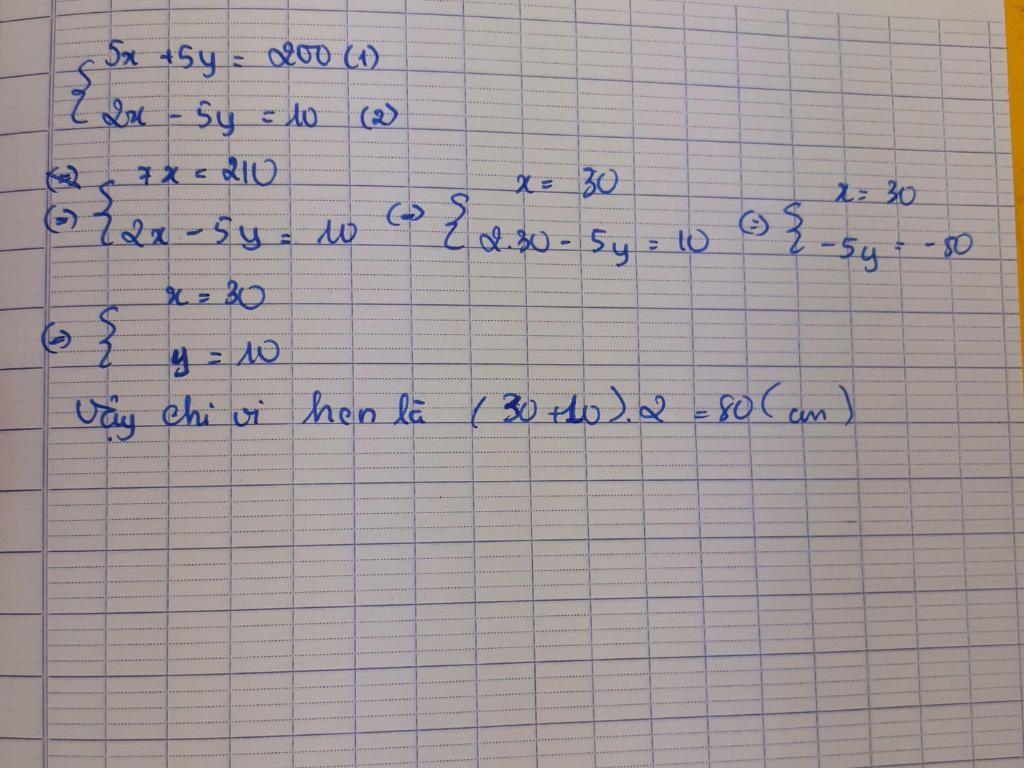 5x + 5y = 200 (1)
2x - 5y = 10 (2)
7x = 210
(=) { 2x - 5y = 10 (=) { x = 30
2.30 - 5y = 10 (=) { x = 30
-5y = -50
(=) { x = 30
y = 10
Vậy chi vi hcn là (30 + 10).2 = 80 (cm)